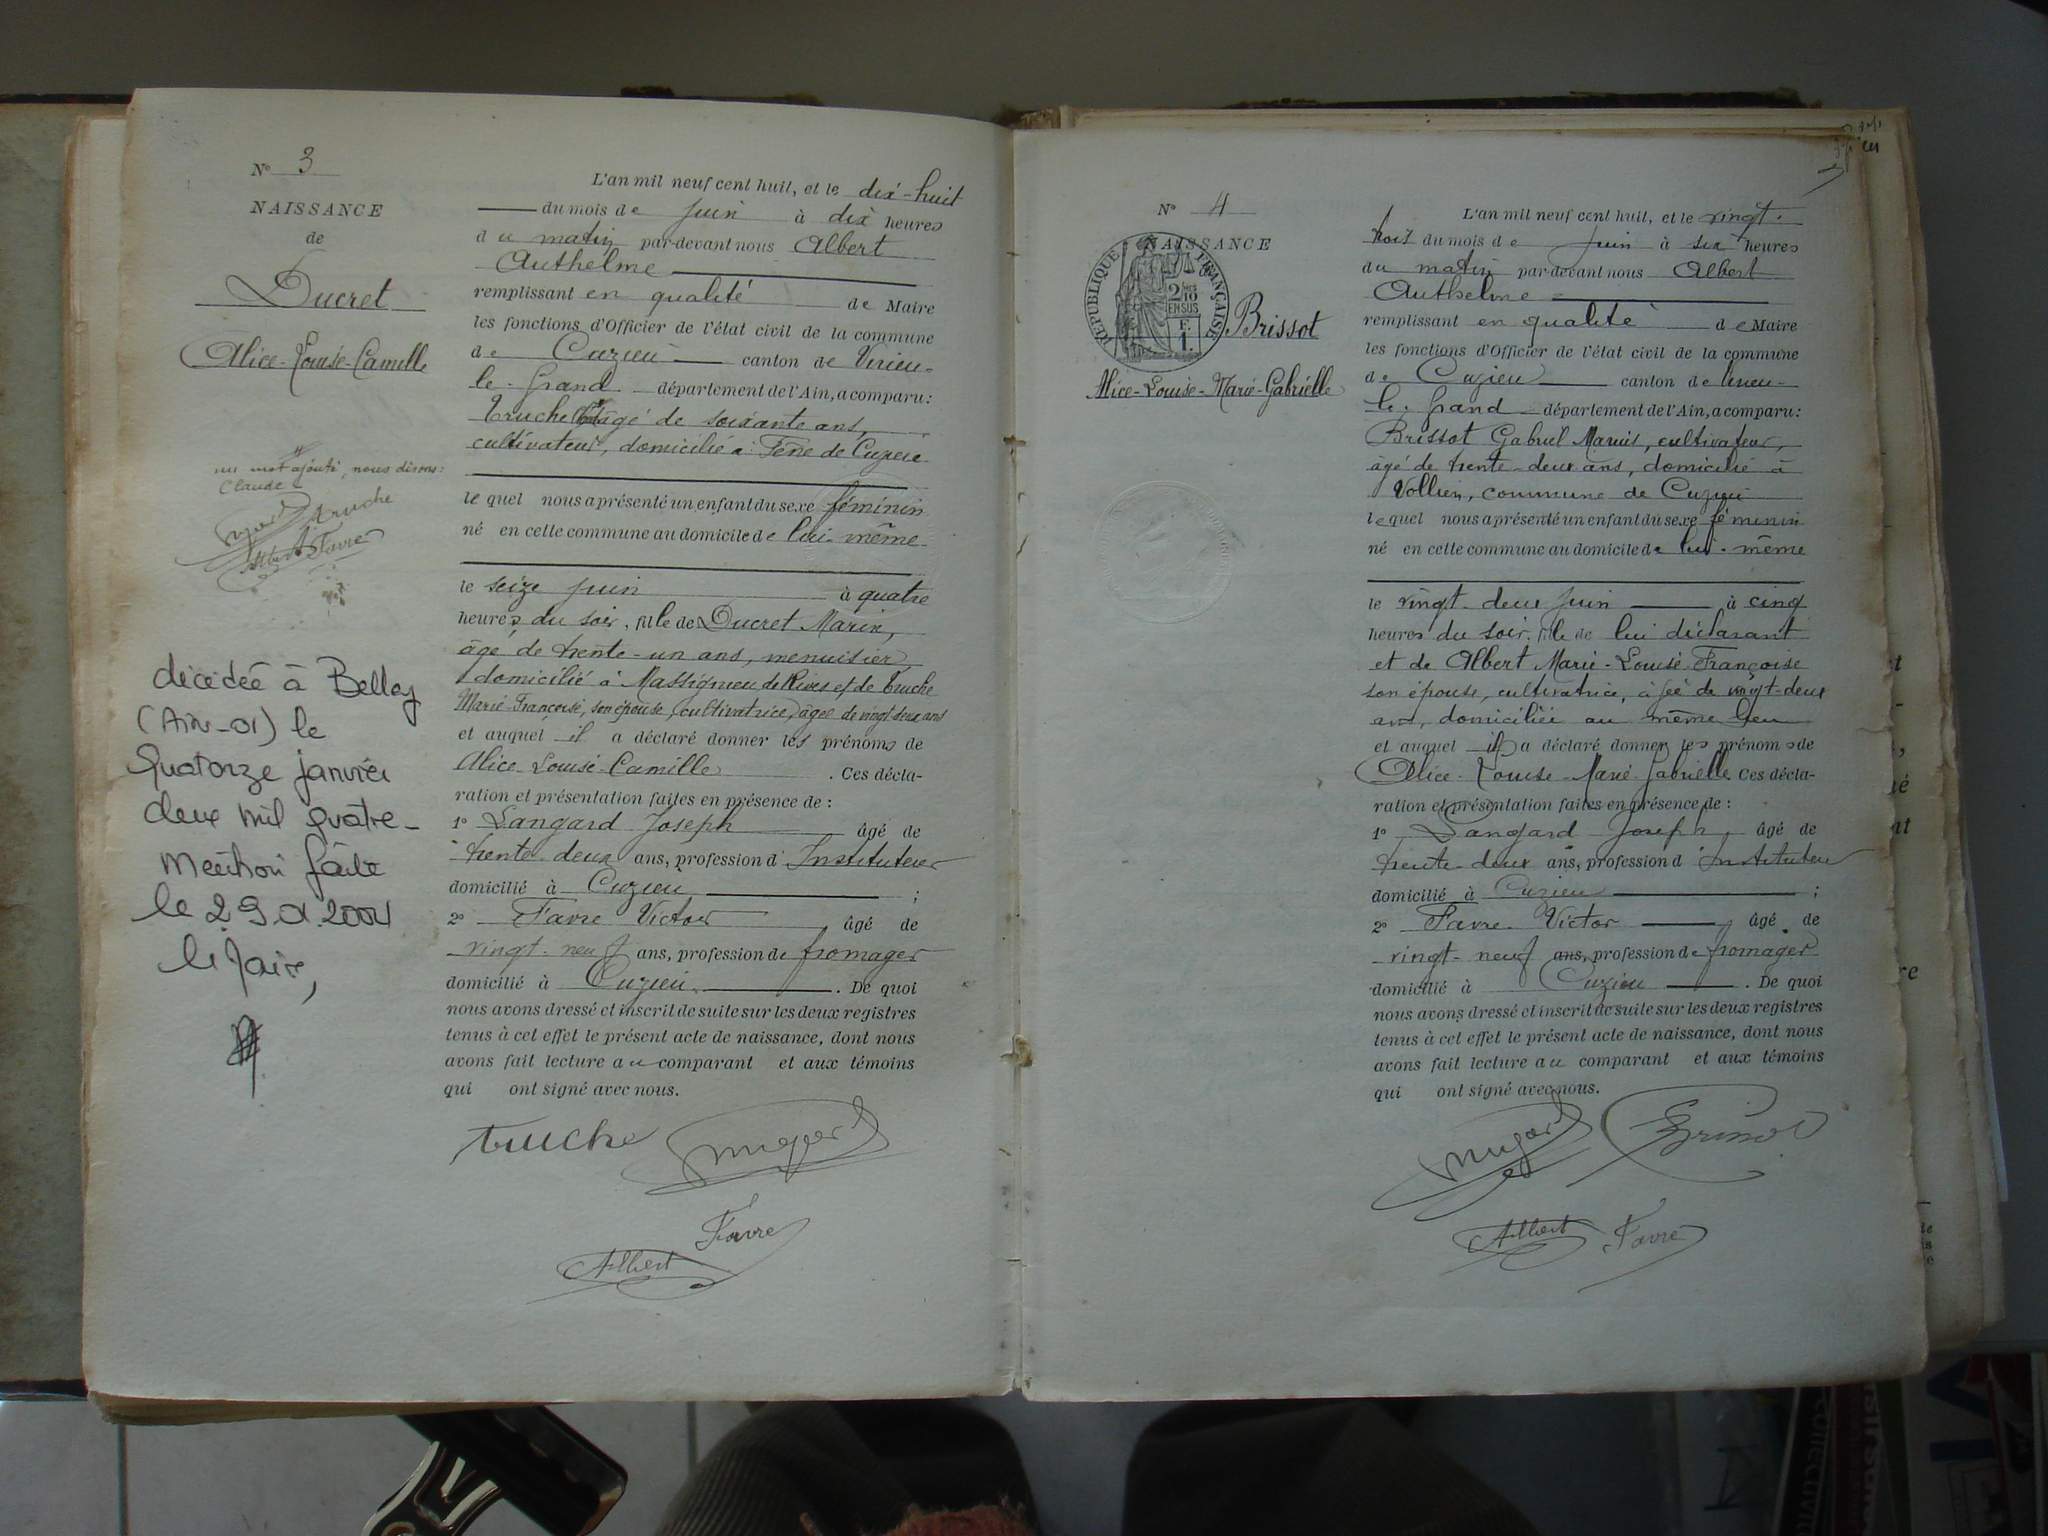 N° 3
NAISSANCE
de
Ducret
Alice-Louise-Camille
un mot ajouté, nous disons:
Claude
Truche
Albert Favre
décédée à Belley
(Ain-01) le
quatorze janvier
deux mil quatre_
Mention faite
le 29.01.2004
le Maire,
L'an mil neuf cent huit, et le dix-huit
du mois de Juin à dix heures
du matin par-devant nous Albert
Anthelme
remplissant en qualité de Maire
les fonctions d'Officier de l'état civil de la commune
de Cuzieu canton de Virieu-
le-Grand département de l'Ain, a comparu:
Truche âgé de soixante ans,
cultivateur, domicilié à de Cuzieu
lequel nous a présenté un enfant du sexe féminin
né en cette commune au domicile de lui-même
le seize Juin à quatre
heures du soir, fille de Ducret Marin,
âgé de trente-un ans, menuisier,
domicilié à Massignieu de Rives et de Truche
Marie-Françoise, son épouse, cultivatrice, âgée de vingt deux ans
et auquel il a déclaré donner les prénoms de
Alice-Louise-Camille . Ces décla-
ration et présentation faites en présence de :
1° Langard Joseph âgé de
trente-deux ans, profession d'Instituteur
domicilié à Cuzieu ;
2° Favre Victor âgé de
vingt-neuf ans, profession de fromager
domicilié à Cuzieu . De quoi
nous avons dressé et inscrit de suite sur les deux registres
tenus à cet effet le présent acte de naissance, dont nous
avons fait lecture au comparant et aux témoins
qui ont signé avec nous.
Truche
Favre
Albert
N° 4
NAISSANCE
RÉPUBLIQUE FRANÇAISE
2/10
EN SUS
F.
1.
Brissot
Alice-Louise-Marie-Gabrielle
L'an mil neuf cent huit, et le vingt-
trois du mois de Juin à six heures
du matin par-devant nous Albert
Anthelme
remplissant en qualité de Maire
les fonctions d'Officier de l'état civil de la commune
de Cuzieu canton de Virieu-
le-Grand département de l'Ain, a comparu:
Brissot Gabriel Marius, cultivateur,
âgé de trente-deux ans, domicilié à
Vollien, commune de Cuzieu
lequel nous a présenté un enfant du sexe féminin
né en cette commune au domicile de lui-même
le vingt-deux Juin à cinq
heures du soir, fille de lui déclarant
et de Albert Marie-Louise-Françoise
son épouse, cultivatrice, âgée de vingt-deux
ans, domiciliée au même lieu
et auquel il a déclaré donner les prénoms de
Alice-Louise-Marie-Gabrielle Ces décla-
ration et présentation faites en présence de :
1° Langard Joseph, âgé de
trente-deux ans, profession d'Instituteur
domicilié à Cuzieu ;
2° Favre Victor âgé de
vingt-neuf ans, profession de fromager
domicilié à Cuzieu . De quoi
nous avons dressé et inscrit de suite sur les deux registres
tenus à cet effet le présent acte de naissance, dont nous
avons fait lecture au comparant et aux témoins
qui ont signé avec nous.
Albert Favre